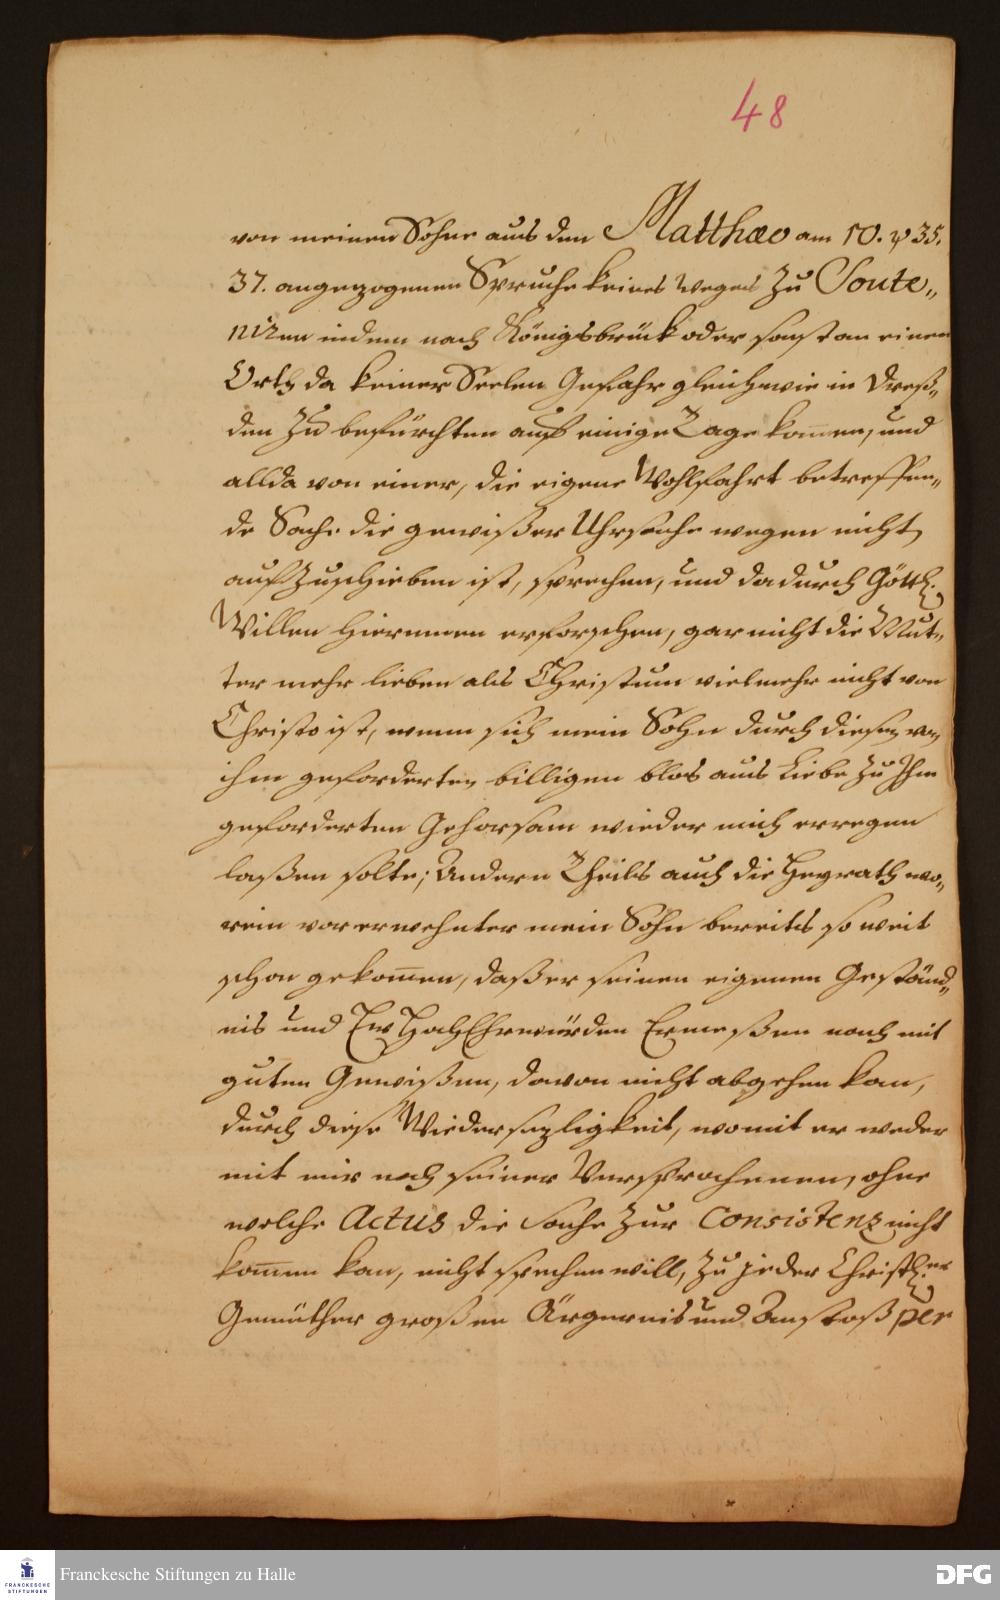 48
von meinen Sohne aus den Matthæo am 10. v 35.
37. angezogenen Spruche keines weges zu Soute„
niren indem nach Königsbrück oder sonst an einen
Orth da keiner Seelen Gefahr gleichwie in Dreß„
den zu befürchten auf einige Tage kom̅en, und
allda von einer, die eigene Wohlfahrt betreffen„
de Sache die gewißer Uhrsache wegen nicht
aufzuschieben ist, sprechen, und dadurch Göttl.
Willen hierinnen erforschen, gar nicht die Mut„
ter mehr lieben als Christum vielmehr nicht von
Christo ist, wenn sich mein Sohn durch diesen von
ihm geforderten billigen blos aus Liebe zu Ihm
geforderten Gehorsam wieder mich erregen
laßen solte; Andern Theils auch die Heyrath wo„
rein vor erwehnter mein Sohn bereits so weit
schon gekom̅en, daß er seinen eigenen Geständ„
nis und Ew HochEhrwürden Ermeßen nach mit
guten Gewißen, davon nicht abgehen kan,
durch diese Wiedersezligkeit, womit er weder
mit mir noch seiner Versprochenen, ohne
welche Actus die Sache zur Consistenz nicht
kom̅en kan, nicht sprechen will, zu jeder Christl.er
Gemüther großen Ärgernis und Anstoß per
FRANCKESCHE STIFTUNGEN
Franckesche Stiftungen zu Halle
DFG